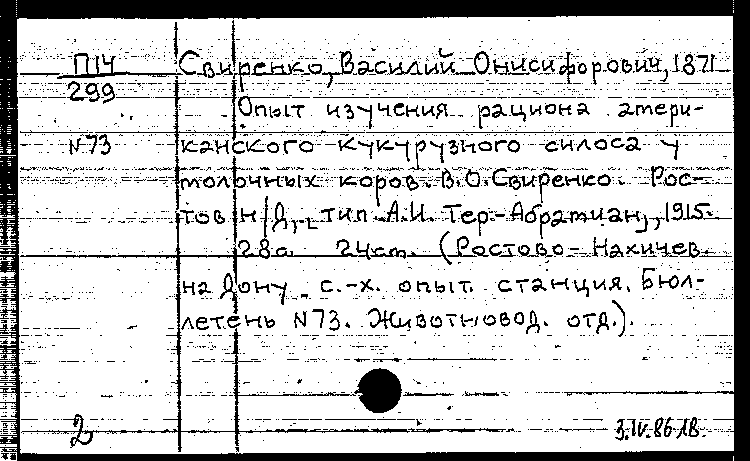 П14
299
N73
Свиренко, Василий Онисифорович, 1871
Опыт изучения рациона амери-
канского кукурузного силоса у
молочных коров. В.О.Свиренко. Рос-
тов н/Д, тип. А.И. Тер-Абрамиан, 1915.
28с. 24см. (Ростово-Нахичев.
на Дону с.-х. опыт. станция. Бюл-
летень N73. Животновод. отд.).
2
3.IV.86 ЛВ.